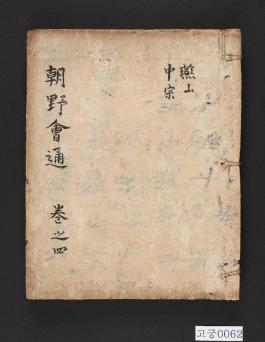 燕山
中宗
朝野會通 卷之四
고궁0062